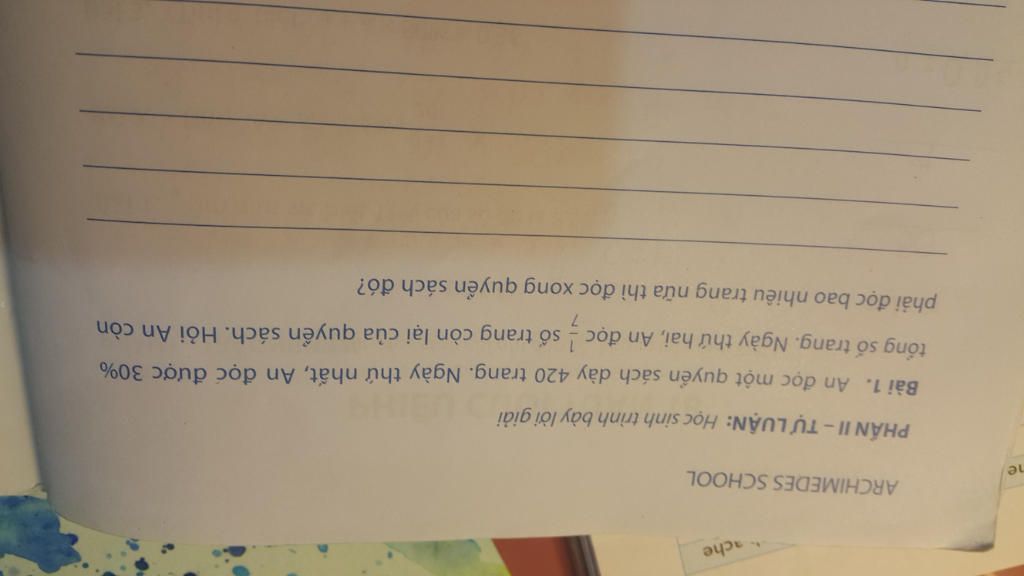 ARCHIMEDES SCHOOL
PHẦN II – TỰ LUẬN: Học sinh trình bày lời giải
Bài 1. An đọc một quyển sách dày 420 trang. Ngày thứ nhất, An đọc được 30%
tổng số trang. Ngày thứ hai, An đọc 1/7 số trang còn lại của quyển sách. Hỏi An còn
phải đọc bao nhiêu trang nữa thì đọc xong quyển sách đó?
ache